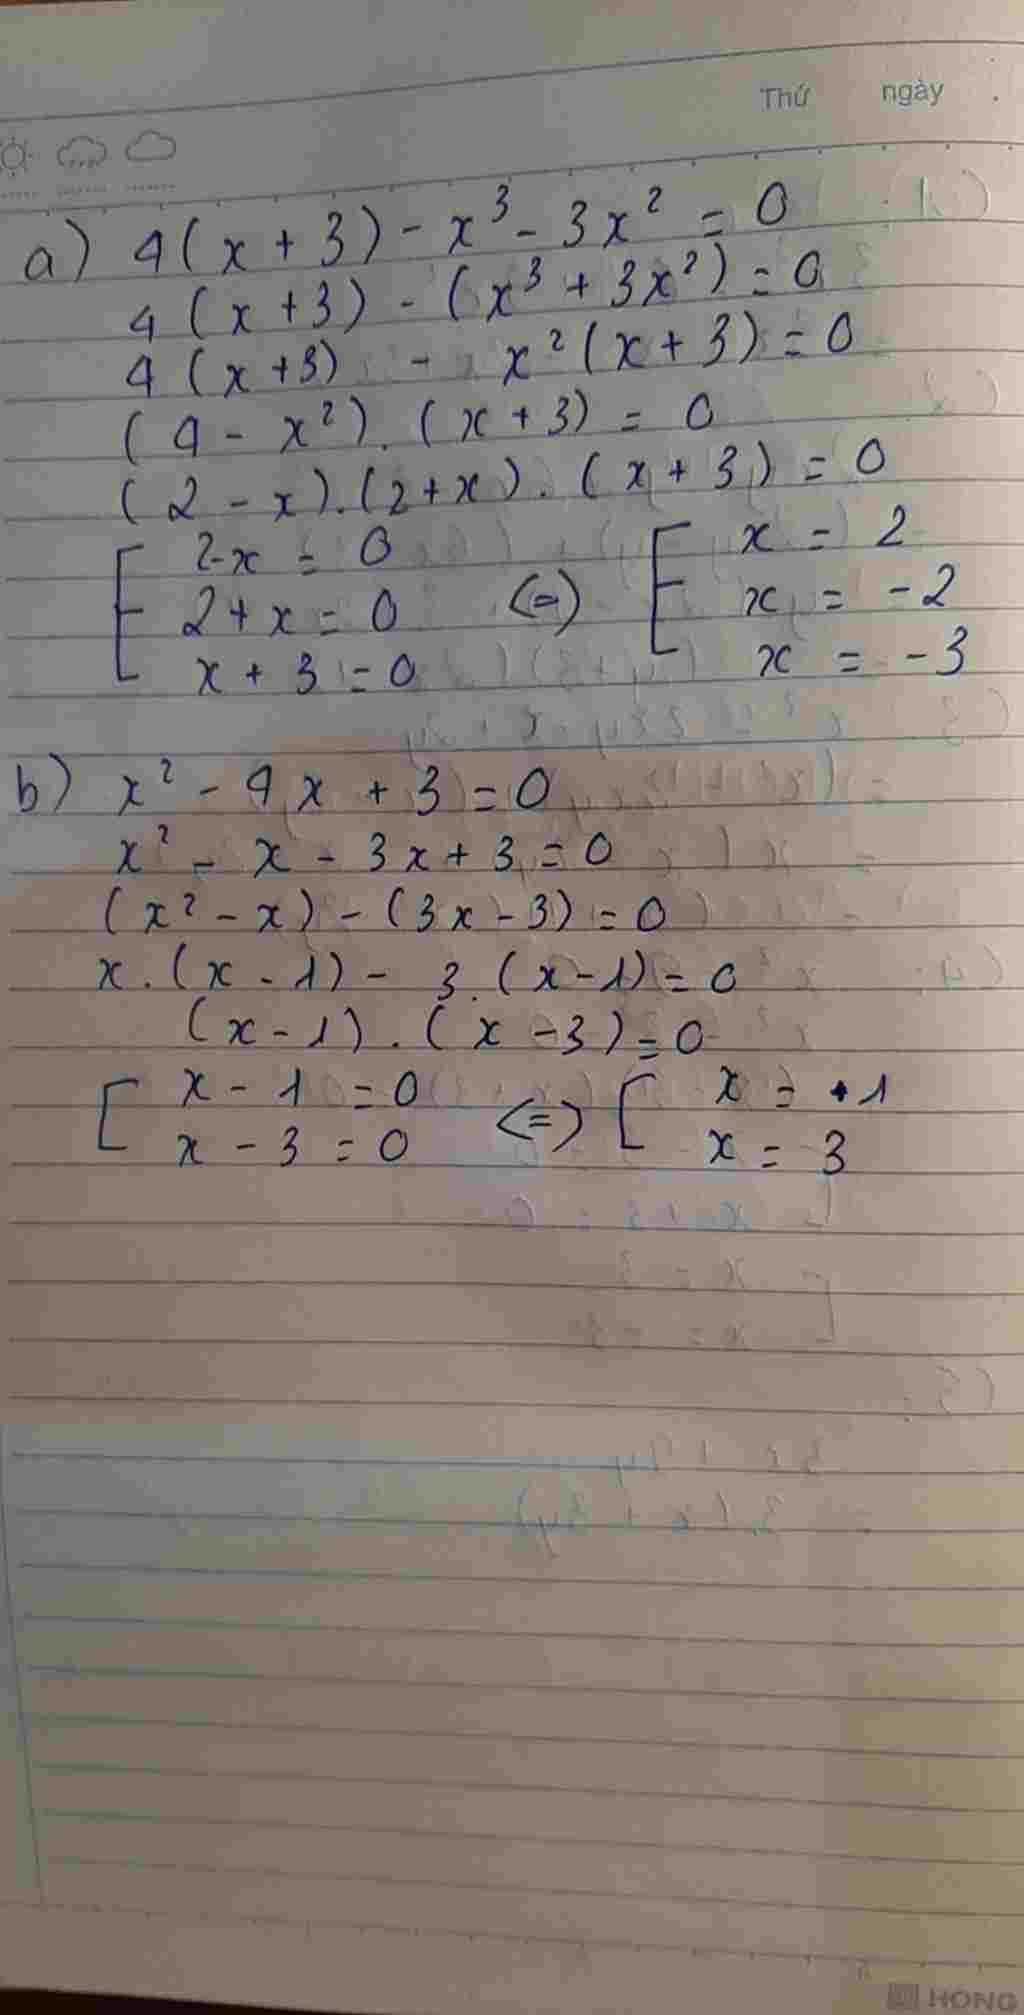 Thứ ngày .
a) 4(x + 3) - x³ - 3x² = 0
4(x + 3) - (x³ + 3x²) = 0
4(x + 3) - x²(x + 3) = 0
(4 - x²).(x + 3) = 0
(2 - x).(2 + x).(x + 3) = 0
[ 2-x = 0 (=) [ x = 2
2 + x = 0 x = -2
x + 3 = 0 x = -3
b) x² - 4x + 3 = 0
x² - x - 3x + 3 = 0
(x² - x) - (3x - 3) = 0
x.(x - 1) - 3.(x - 1) = 0
(x - 1).(x - 3) = 0
[ x - 1 = 0 <=> [ x = 1
x - 3 = 0 x = 3
HONG